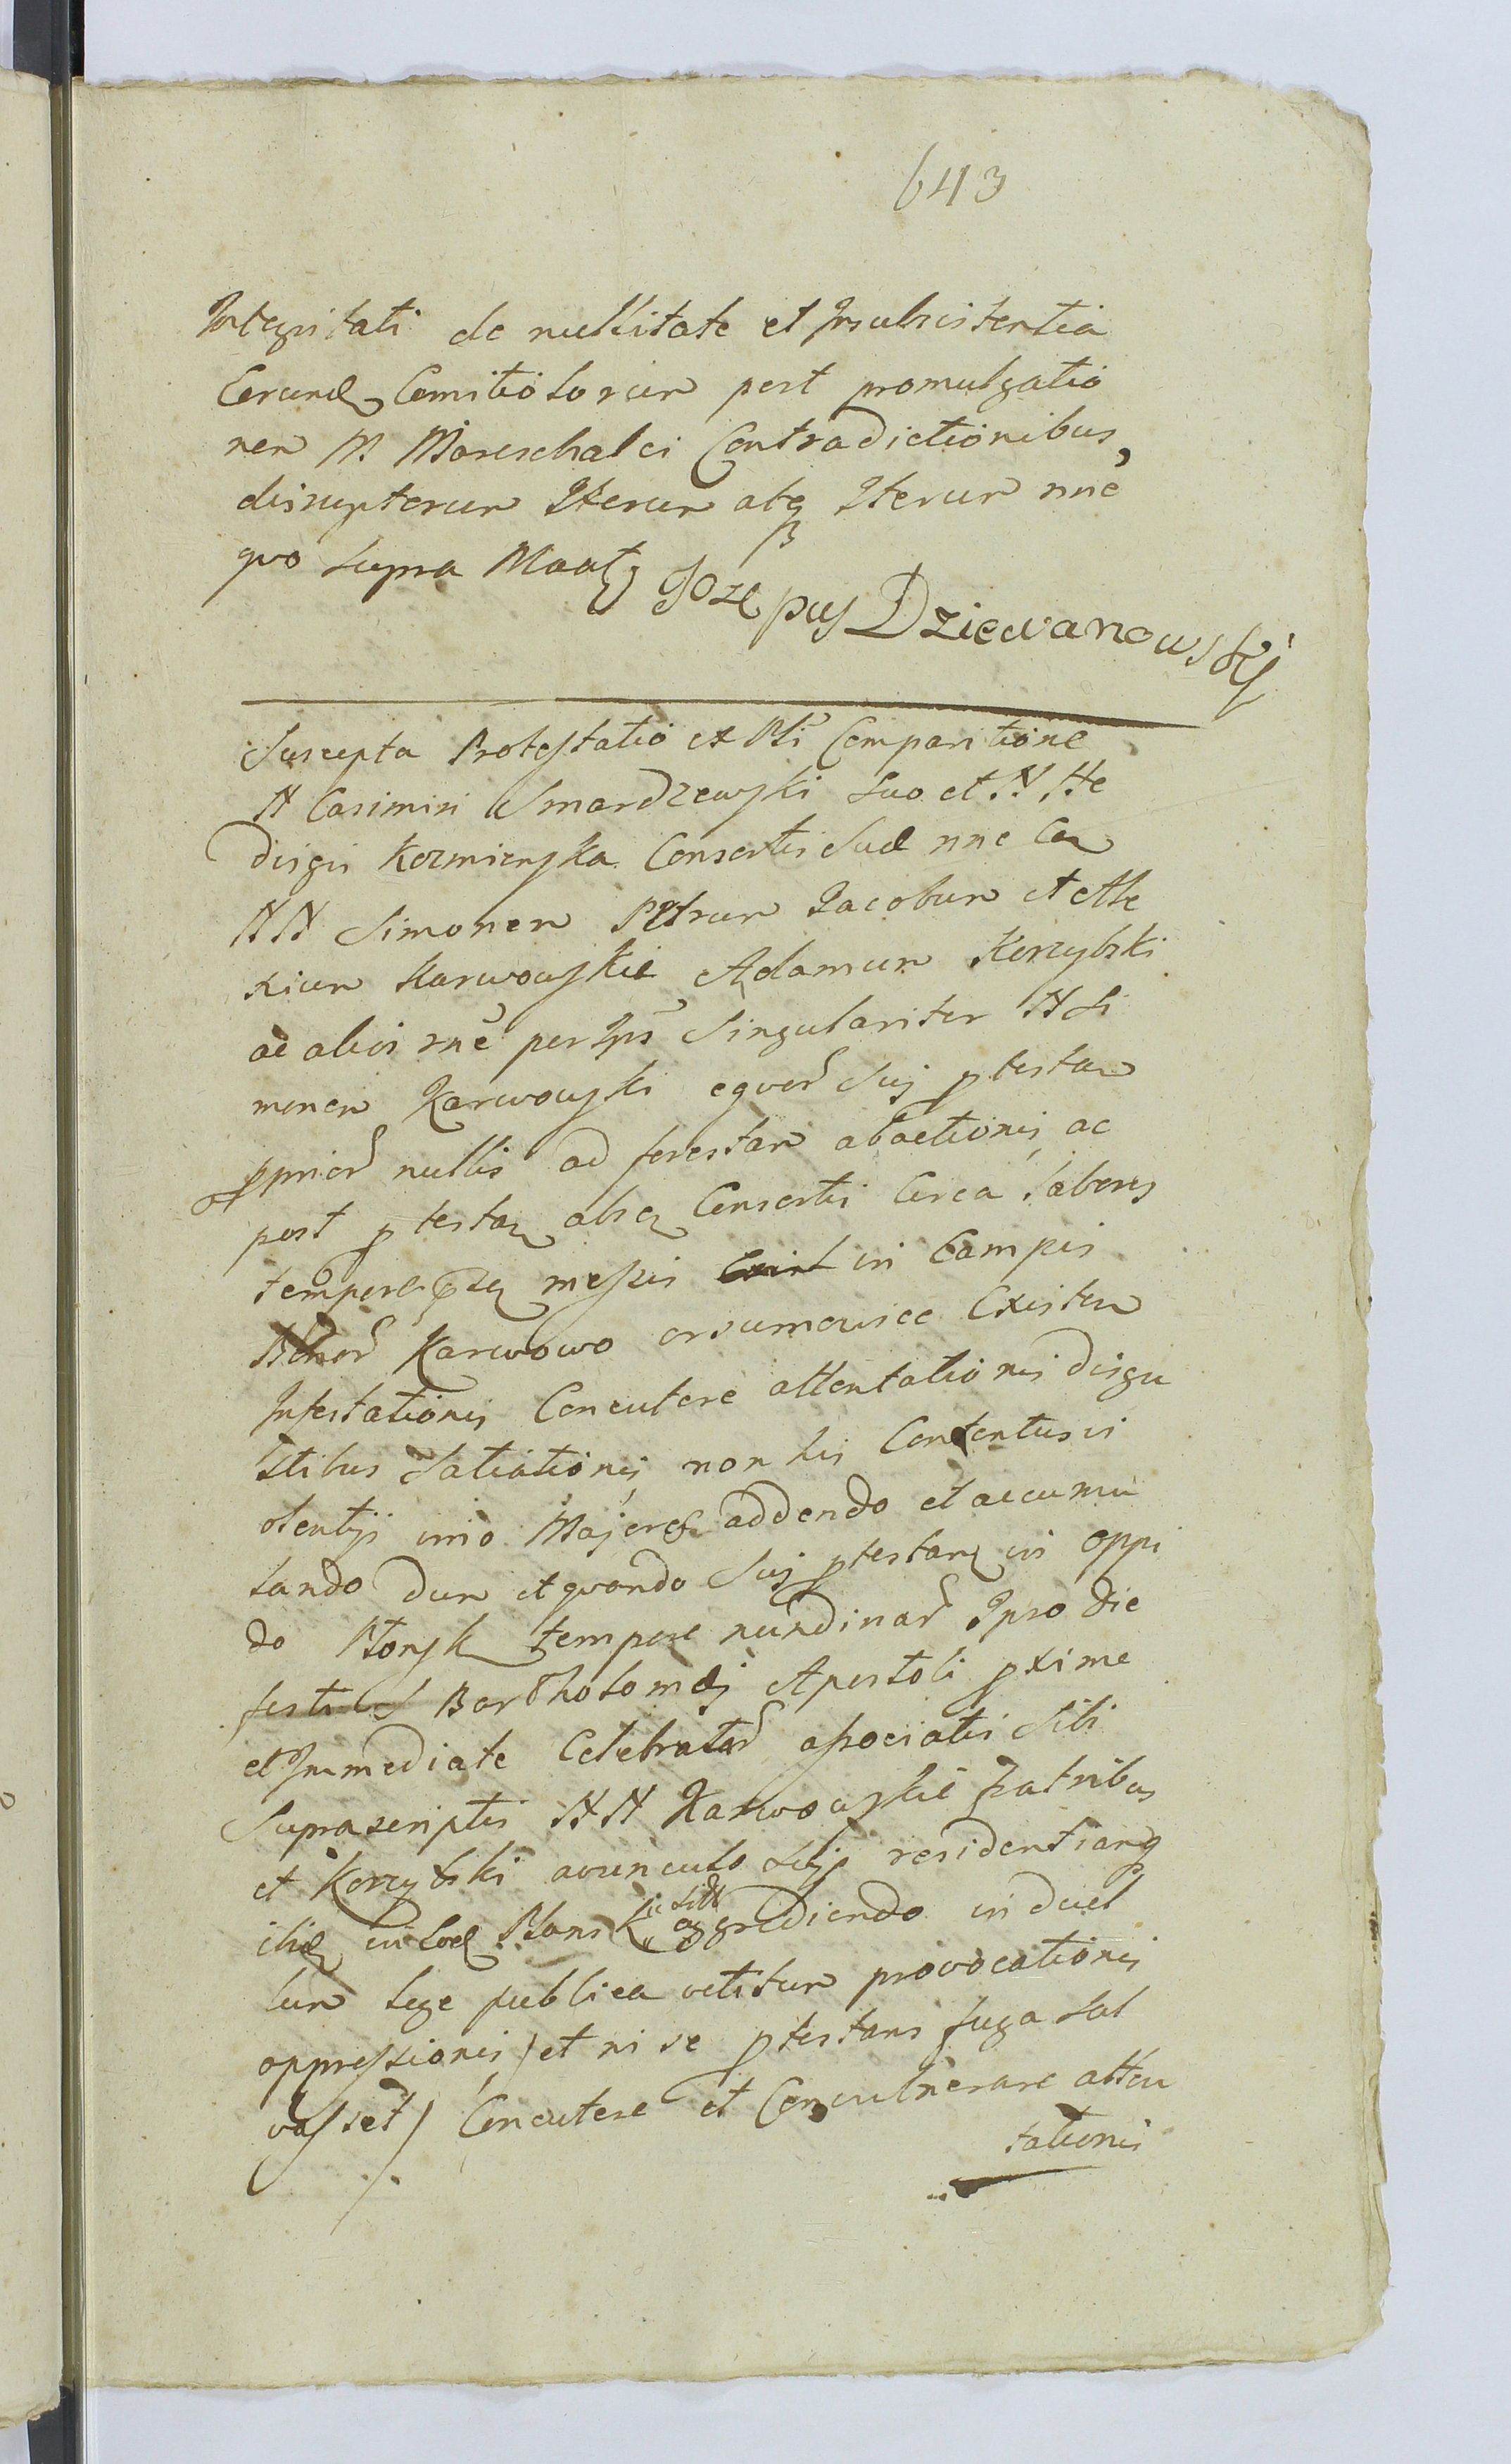 643
Integritati de nullitate et Insubsistentia
Eerund Comitiolorum post promulgatio
nem M. Mareschalci Contradictionibus,
disruptorum Iterum atq Iterum nne
quo supra Maat Jozepus Dziewanowsky
Suscepta Protestatio et Pti Comparitione
N Casimiri Smardzewski suo et N. He
dvigis Kozmienska Consortis Suæ nne Con
NN Simonem Petrum Jacobum et Ale
xium Karwowskie Adamum Korzybski
ac alios rne per Ips Singulariter N Si
monem Karwowski equor Suj ptestan
pprior nullis ad forestam abactionis, ac
post ptestan absq Consortis Circa labores
tempore messis in Campis
Bonor Karwowo orsumowice Existen
Infestationis Concutere attentationis disgu
stibus Satiationis, non his Contentus vi
olentijs imo Majores addendo et accumu
lando dum et quando Suj ptestans in oppi
do Płonsk tempore nundinar Ipso die
festi S Bartholomæj Apostoli pxime
et Immediate Celebratar associatis Sibi
Suprascriptis NN Karwowskie Fratribus
et Korzybski avunculo residentiamq
ibid in Płonsk aggrediendo in duel
lum lege publica vetitum provocationis
oppressionis / et ni se ptestans fuga sal
vasset / Concutere et Convulnerare atten
tationis